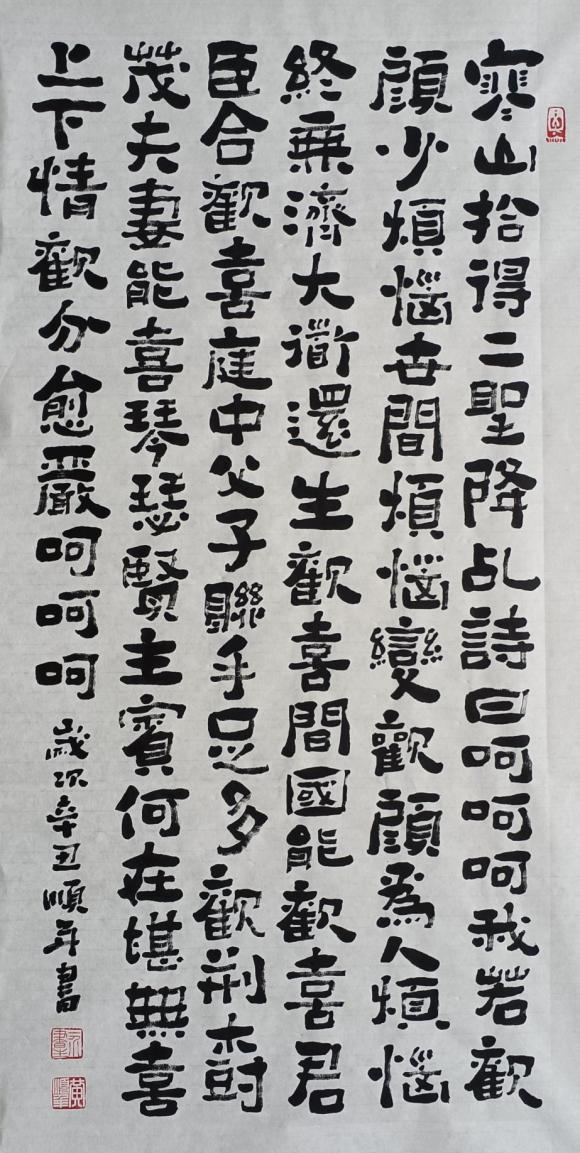 寒山拾得二聖降乩詩曰呵呵呵我若歡
顏少煩惱世間煩惱變歡顏爲人煩惱
終無濟大衟還生歡喜間國能歡喜君
臣合歡喜庭中父子聯手足多歡荆樹
茂夫妻能喜琴瑟賢主賓何在堪無喜
上下情歡分愈嚴呵呵呵
歲次辛丑順年書